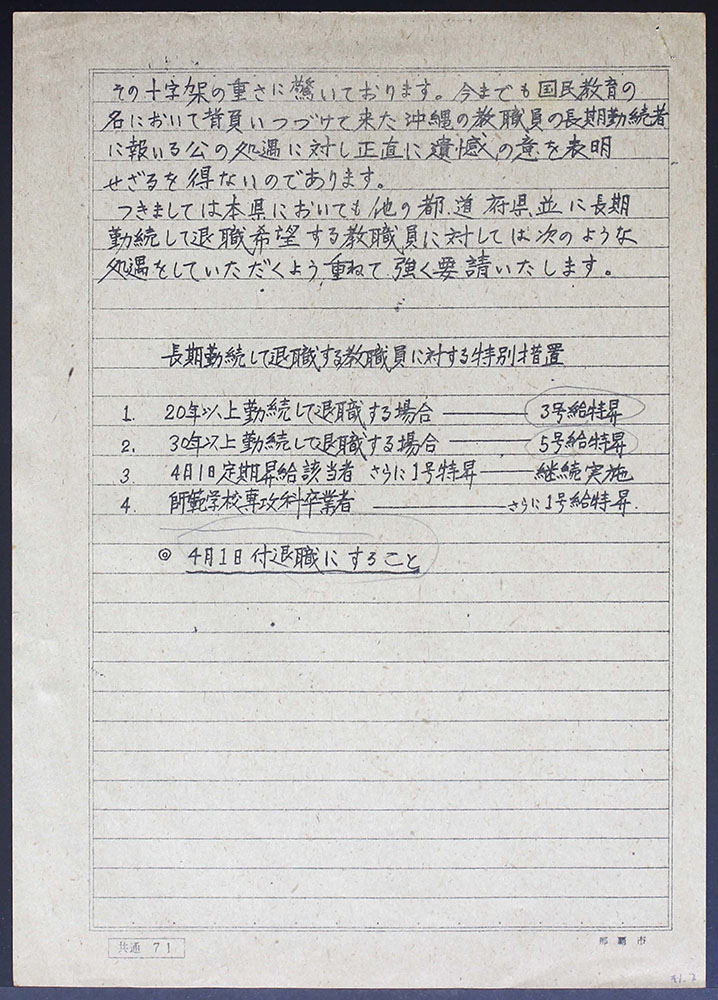 その十字架の重さに驚いております。今までも国民教育の
名において背負いつづけて来た沖縄の教職員の長期勤続者
に報いる公の処遇に対し正直に遺憾の意を表明
せざるを得ないのであります。
つきましては本県においても他の都、道府県並に長期
勤続して退職希望する教職員に対しては次のような
処遇をしていただくよう、重ねて強く要請いたします。
長期勤続して退職する教職員に対する特別措置
1. 20年以上勤続して退職する場合 ——— 3号給特昇
2. 30年以上勤続して退職する場合 ——— 5号給特昇
3 4月1日定期昇給該当者 さらに1号特昇 —— 継続実施
4. 師範学校専攻科卒業者 ——— さらに1号給特昇.
◎ 4月1日付退職にすること
共通 71
那覇市